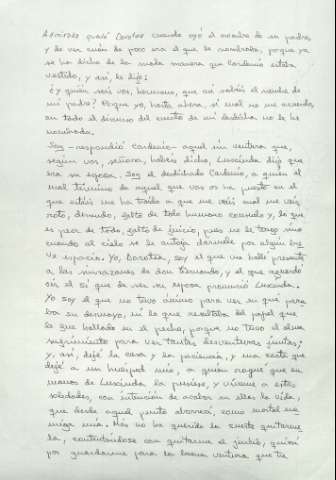 Admirada quedó Dorotea cuando oyó el nombre de su padre,
y de ver cuán de poco era el que le nombraba, porque ya
se ha dicho de la mala manera que Cardenio estaba
vestido, y así, le dijo:
¿y quién sois vos, hermano, que así sabéis el nombre de
mi padre? Porque yo, hasta ahora, si mal no me acuerdo,
en todo el discurso del cuento de mi desdicha no le he
nombrado.
Soy -respondió Cardenio- aquel sin ventura que,
según vos, señora, habéis dicho, Luscinda dijo que
era su esposa. Soy el desdichado Cardenio, a quien el
mal término de aquel que a vos os ha puesto en el
que estáis me ha traído a que me veáis cual me veis,
roto, desnudo, falto de todo humano consuelo y, lo que
es peor de todo, falto de juicio, pues no le tengo sino
cuando al cielo se le antoja dármele por algún bre
ve espacio. Yo, Dorotea, soy el que me hallé presente
a las sinrazones de don Fernando, y el que aguardó
oír el sí que de ser su esposa pronunció Luscinda.
Yo soy el que no tuvo ánimo para ver en qué para
ba su desmayo, ni lo que resultaba del papel que
le fue hallado en el pecho, porque no tuvo el alma
sufrimiento para ver tantas desventuras juntas;
y, así, dejé la casa y la paciencia, y una carta que
dejé a un huésped mío, a quien rogué que en
manos de Luscinda la pusiese, y víneme a estas
soledades, con intención de acabar en ellas la vida,
que desde aquel punto aborrecí, como mortal ene
miga mía. Mas no ha querido la suerte quitárme
la, contentándose con quitarme el juicio, quizá
por guardarme para la buena ventura que he